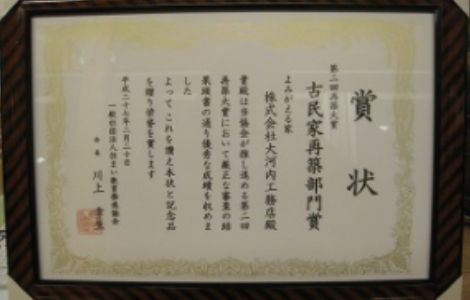 賞状
第二回再築大賞
古民家再築部門賞
よみがえる家
株式会社大河内工務店殿
貴殿は当協会が推し進める第二回
再築大賞において厳正な審査の結
果頭書の通り優秀な成績を収めま
した
よってこれを讃え本状と記念品
を贈り栄誉を賞します
平成二十七年二月二十日
一般社団法人住まい教育推進協会
会長 川上